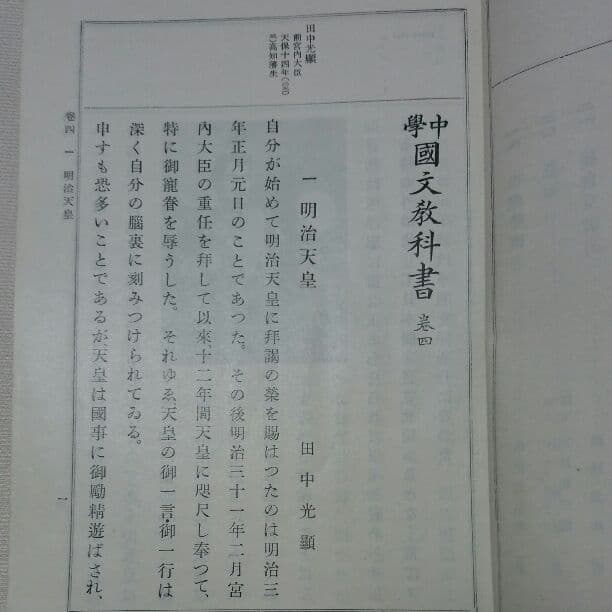 中學 國文教科書 卷四
一 明治天皇
田中光顯
自分が始めて明治天皇に拜謁の榮を賜はつたのは明治三
年正月元日のことであつた。その後明治三十一年二月宮
內大臣の重任を拜して以來、十二年間天皇に咫尺し奉つて、
特に御寵眷を辱うした。それゆゑ天皇の御一言・御一行は
深く自分の腦裏に刻みつけられてゐる。
申すも恐多いことであるが、天皇は國事に御勵精遊ばされ、
田中光顯
前宮內大臣
天保十四年
高知藩生
卷四 一 明治天皇
一